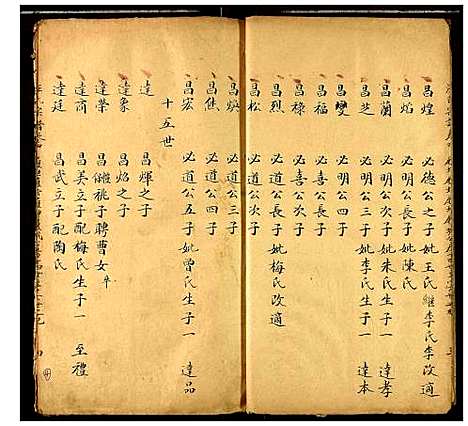 昌煌 必德公之子妣王氏繼李氏李改適
昌焰 必明公長子妣陳氏
昌蘭 必明公次子妣朱氏生子一 達孝
昌芝 必明公三子妣李氏生子一 達本
昌燮 必明公四子
昌福 必喜公長子
昌祿 必喜公次子
昌烈 必道公長子妣梅氏改適
昌松 必道公次子
昌煥 必道公三子
昌焦 必道公四子
昌宏 必道公五子妣曾氏生子一 達品
十五世
達 昌輝之子
達象 昌焰之子
達榮 昌 桃子聘曹女卒
達商 昌美立子配梅氏生子一 至禮
達廷 昌武立子配陶氏